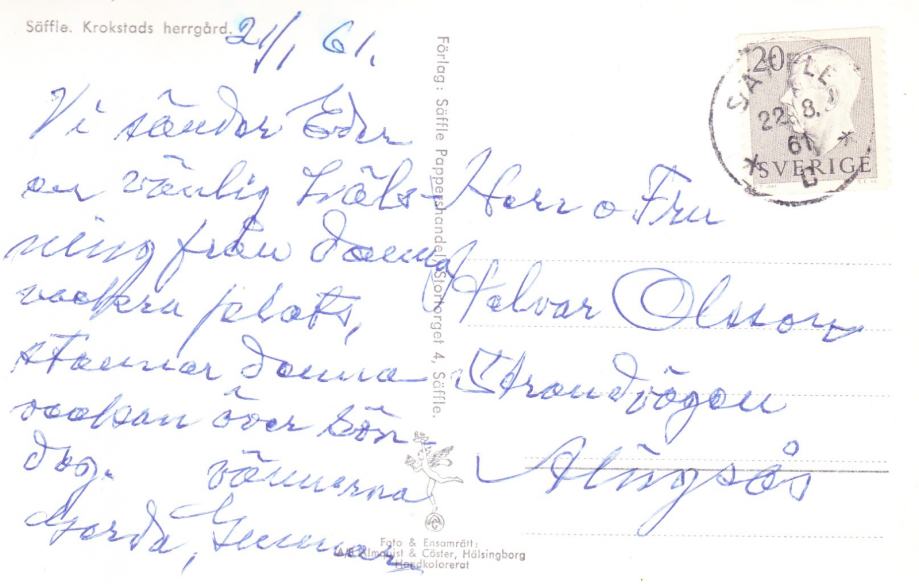 Säffle. Krokstads herrgård.
21/1 61.
Vi sänder Eder
en vänlig häls-
ning från denna
vackra plats,
stannar denna
veckan över sön-
dag. vännerna
Gerda, Gunnar
Förlag: Säffle Pappershandel, Stortorget 4, Säffle.
20
SÄFFLE
22.8.
61
SVERIGE
Herr o Fru
Halvar Olsson
Strandvägen
Alingsås
Foto & Ensamrätt:
A/B Almquist & Cöster, Hälsingborg
Handkolorerat